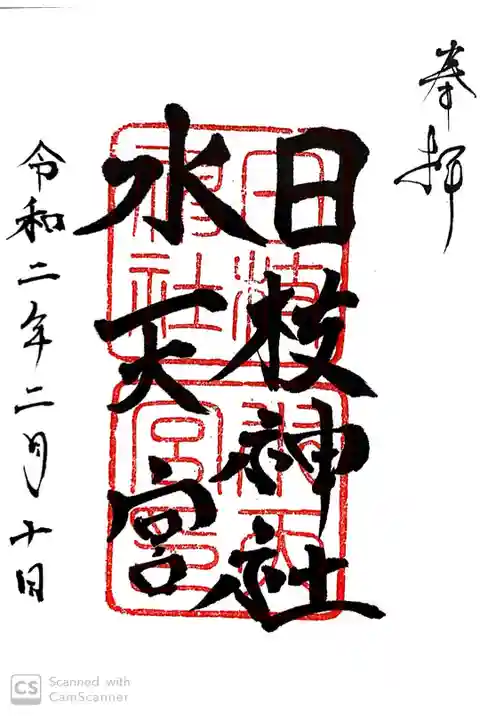 奉拝
日枝神社
水天宮
令和二年二月十日
日枝神社
水天宮
CS
Scanned with
CamScanner